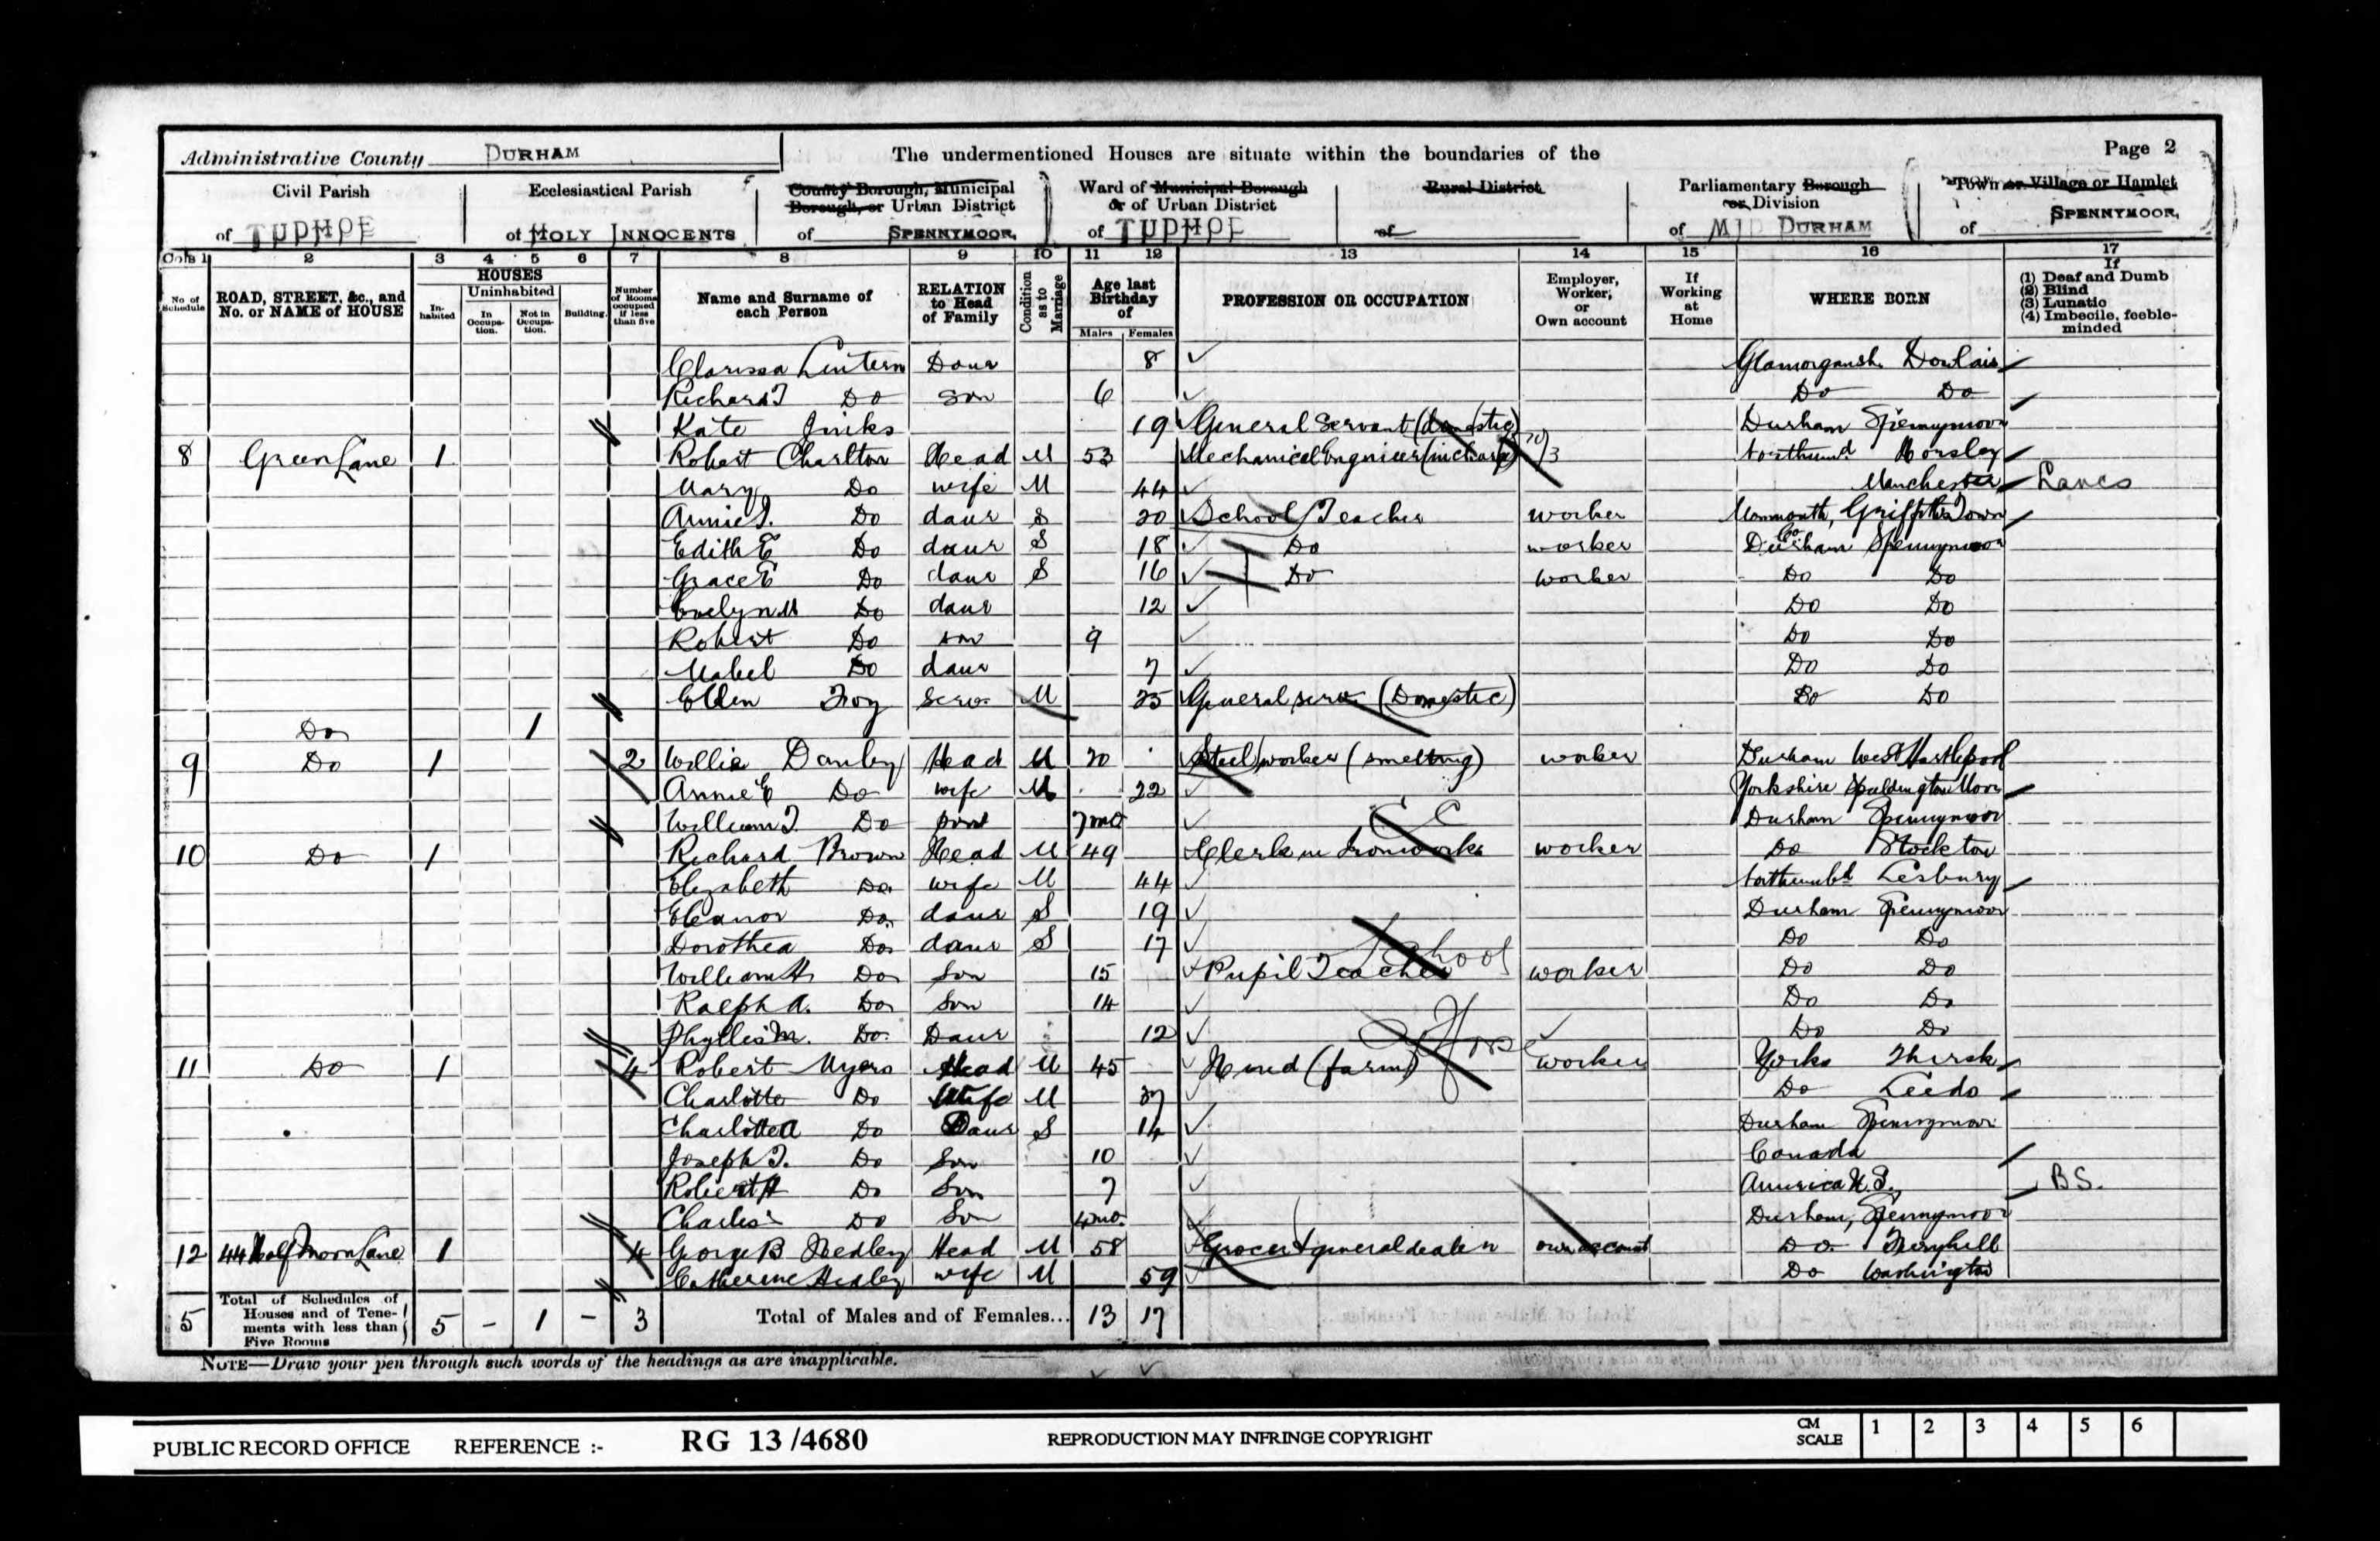 Administrative County DURHAM The undermentioned Houses are situate within the boundaries of the Page 2
Civil Parish Ecclesiastical Parish County Borough, Municipal Borough, or Urban District Ward of Municipal Borough or of Urban District Rural District Parliamentary Borough or Division Town or Village or Hamlet
of TUDHOE of HOLY INNOCENTS of SPENNYMOOR. of TUDHOE of of MID DURHAM of SPENNYMOOR.
Cols 1 2 3 4 5 6 7 8 9 10 11 12 13 14 15 16 17
No. of Schedule ROAD, STREET, &c., and No. or NAME of HOUSE HOUSES Inhabited Uninhabited In Occupation. Not in Occupation. Building. Number of Rooms occupied if less than five Name and Surname of each Person RELATION to Head of Family Condition as to Marriage Age last Birthday of Males Females PROFESSION OR OCCUPATION Employer, Worker, or Own account If Working at Home WHERE BORN If (1) Deaf and Dumb (2) Blind (3) Lunatic (4) Imbecile, feeble-minded
Clarissa Lintern Daur 8 Glamorgansh. Dowlais
Richard J Do son 6 Do Do
Kate Jinks 19 General Servant (domestic) Durham Spennymoor
8 Green Lane 1 Robert Charlton Head M 53 Mechanical Engineer (in charge) Northumd Horsley
Mary Do wife M 44 Manchester Lancs
Annie J. Do daur S 20 School Teacher worker Monmouth, Griffiths Town
Edith E Do daur S 18 Do worker Co Durham Spennymoor
Grace E Do daur S 16 Do worker Do Do
Evelyn M Do daur 12 Do Do
Robert Do son 9 Do Do
Mabel Do daur 7 Do Do
Ellen Foy serv. M 25 General serv. (Domestic) Do Do
Do 1
9 Do 1 2 Willie Danley Head M 20 Steel worker (smelting) worker Durham West Hartlepool
Annie E Do wife M 22 Yorkshire Spaldington Moor
William J. Do son 7 mo Durham Spennymoor
10 Do 1 Richard Brown Head M 49 Clerk in Ironworks worker Do Stockton
Elizabeth Do wife M 44 Northumbd Lesbury
Eleanor Do daur S 19 Durham Spennymoor
Dorothea Do daur S 17 School Do Do
William H Do Son 15 Pupil Teacher worker Do Do
Ralph A. Do Son 14 Do Do
Phyllis M. Do Daur 12 Do Do
11 Do 1 4 Robert Myers Head M 45 Hind (farm) worker Yorks Thirsk
Charlotte Do Wife M 37 Do Leeds
Charlotte A Do Daur S 14 Durham Spennymoor
Joseph J. Do Son 10 Canada
Robert H Do Son 7 America U.S. B.S.
Charles Do Son 4 mo. Durham, Spennymoor
12 44 Half Moon Lane 1 4 George B Hedley Head M 58 Grocer & general dealer own account Do Ferryhill
Catherine Hedley wife M 59 Do Washington
5 Total of Schedules of Houses and of Tenements with less than Five Rooms 5 - 1 - 3 Total of Males and of Females... 13 17
NOTE—Draw your pen through such words of the headings as are inapplicable.
PUBLIC RECORD OFFICE REFERENCE :- RG 13 /4680 REPRODUCTION MAY INFRINGE COPYRIGHT CM SCALE 1 2 3 4 5 6